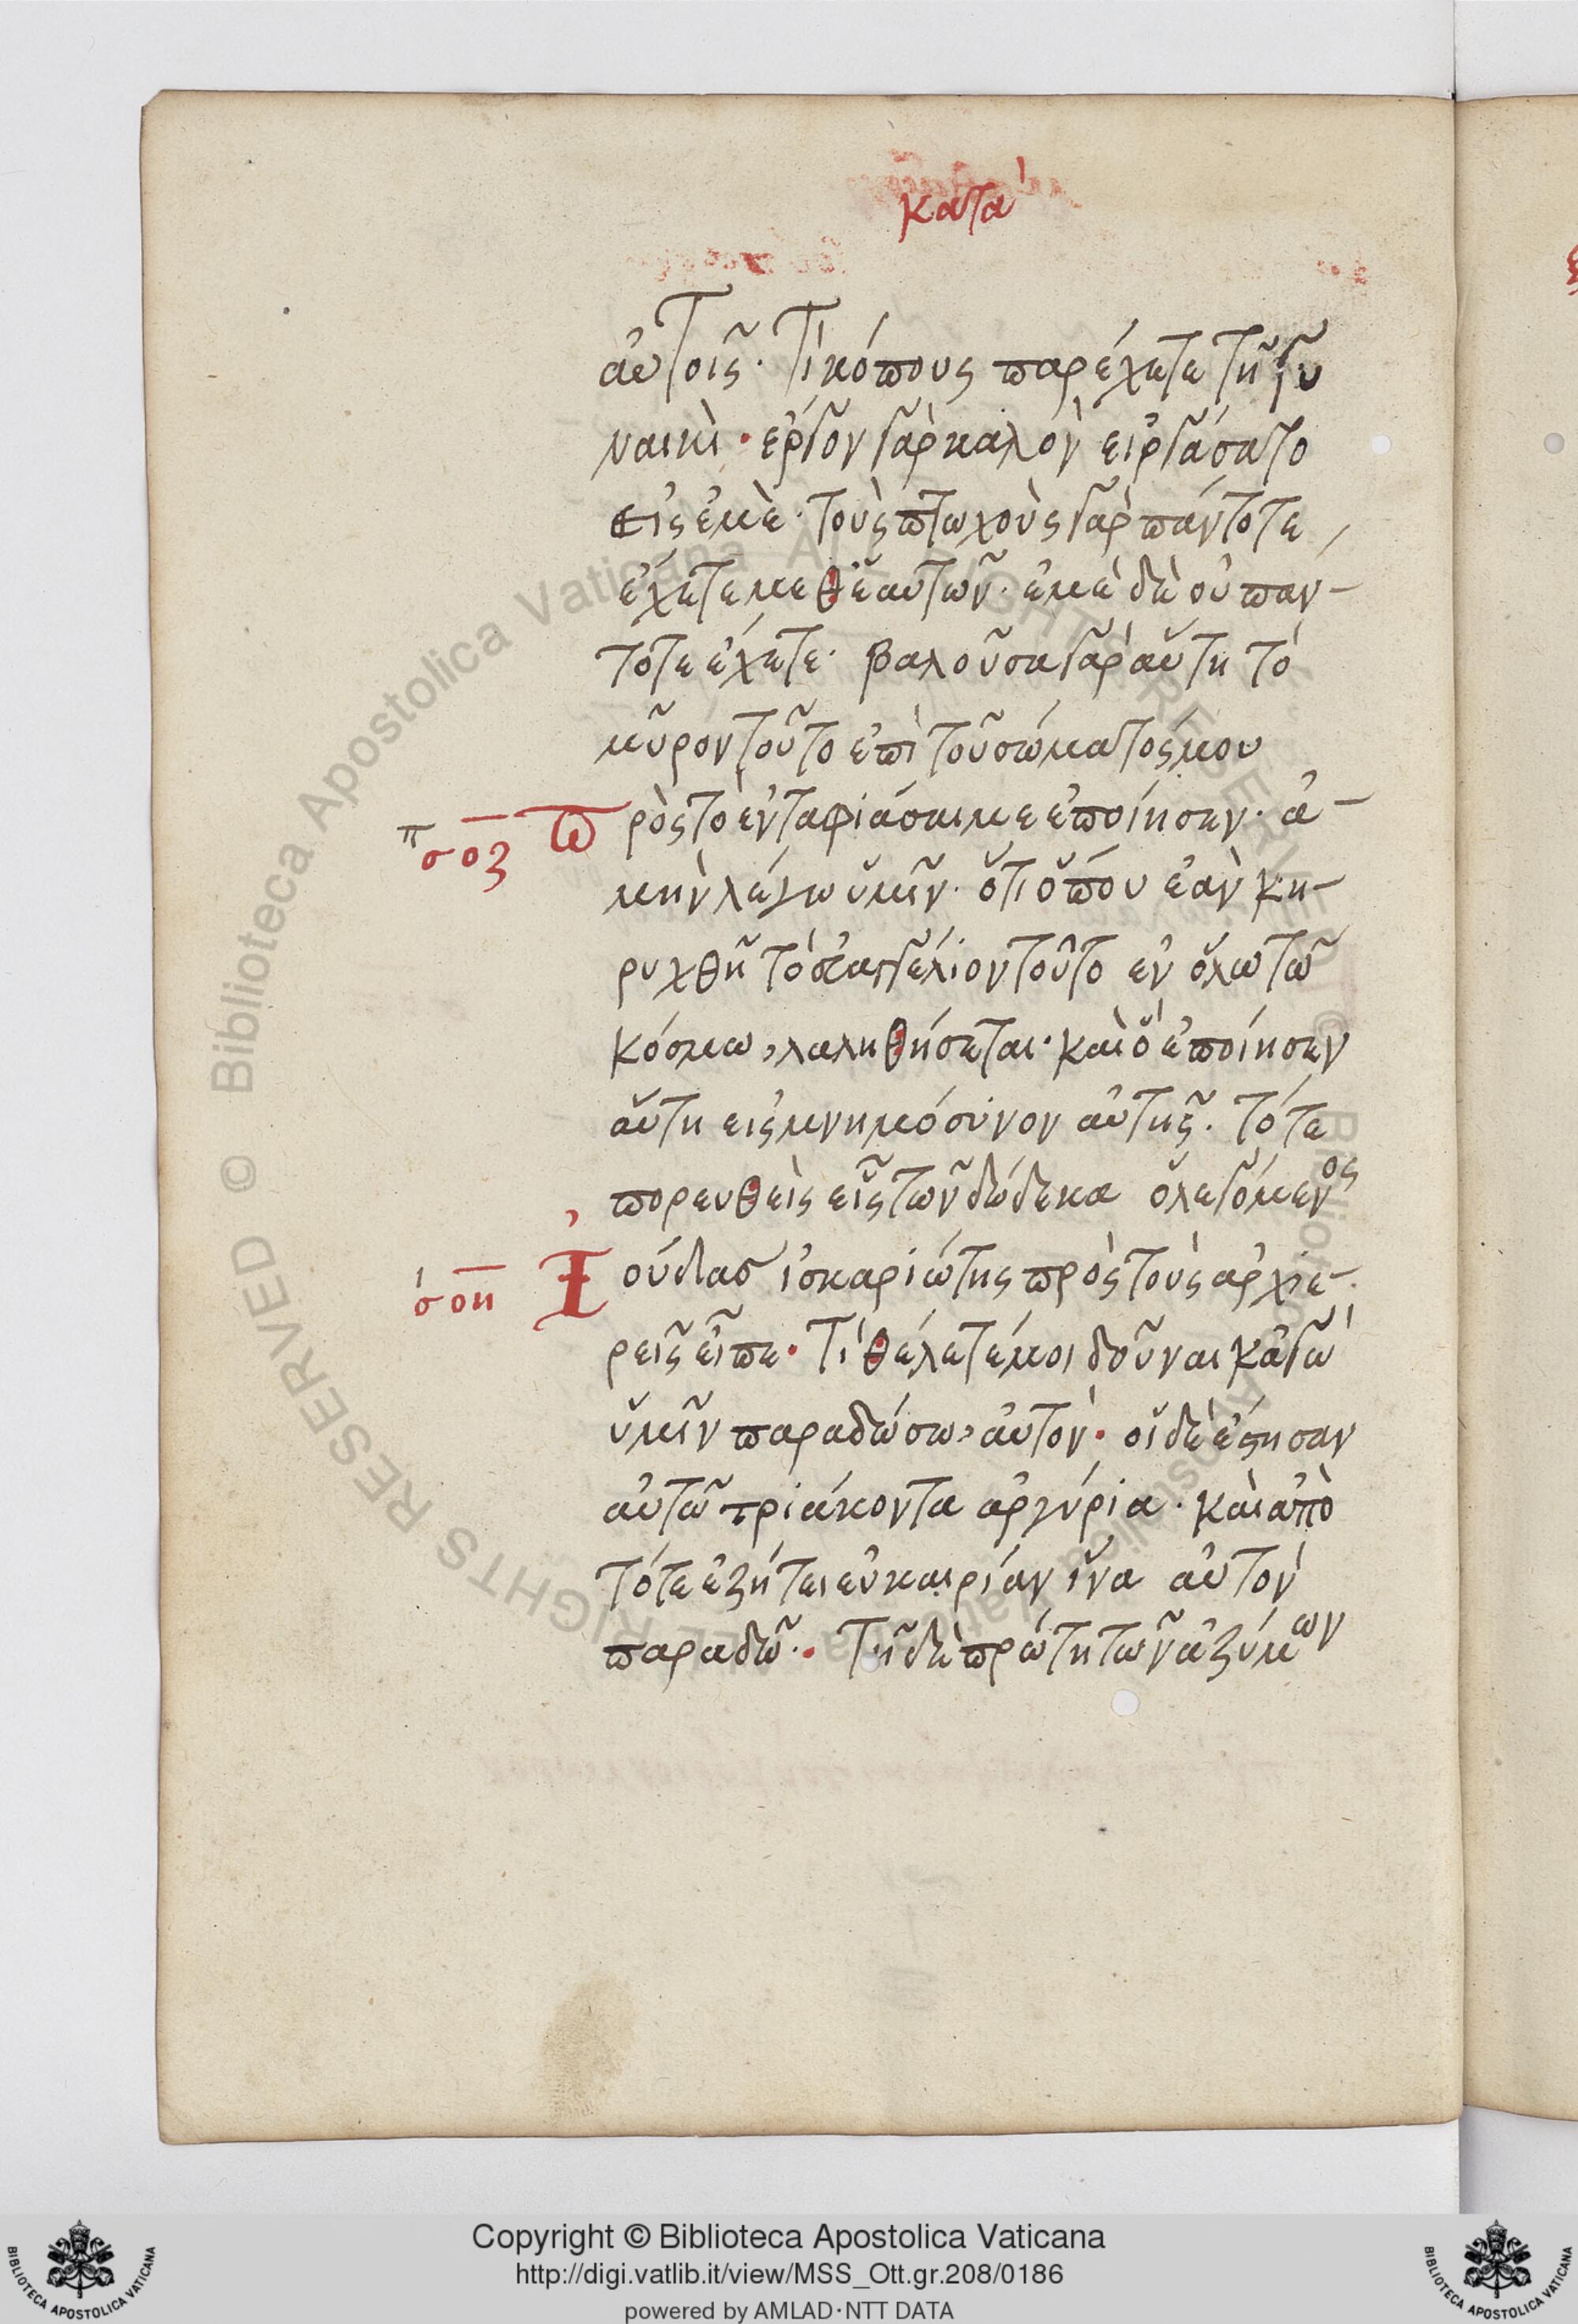 κατὰ
αὐτοῖς· Τί κόπους παρέχετε τῆ γυ
ναικὶ· ἔργον γὰρ καλὸν εἰργάσατο
εἰς ἐμὲ· τοὺς πτωχοὺς γὰρ πάντοτε
ἔχετε μεθ ἑαυτῶν· ἐμὲ δὲ οὐ παν-
τοτε ἔχετε· βαλοῦσα γὰρ αὕτη τὸ
μῦρον τοῦτο ἐπὶ τοῦ σώματός μου
π σοζ Πρὸς τὸ ἐνταφιάσαι με ἐποίησεν· ἀ-
μὴν λέγω ὑμῖν· ὅτι ὅπου ἐὰν κη-
ρυχθῆ τὸ εὐαγγέλιον τοῦτο ἐν ὅλω τῶ
κόσμω, λαληθήσεται· καὶ ὃ ἐποίησεν
αὕτη εἰς μνημόσυνον αὐτῆς. τότε
πορευθεὶς εἷς τῶν δώδεκα ὁ λεγόμενος
σοη Ἰούδας ἰσκαριώτης πρὸς τοὺς ἀρχιε-
ρεῖς εἶπε· Τί θέλετέ μοι δοῦναι κἀγὼ
ὑμῖν παραδώσω, αὐτόν· οἱ δὲ ἔστησαν
αὐτῶ τριάκοντα ἀργύρια· καὶ ἀπὸ
τότε ἐζήτει εὐκαιρίαν ἵνα αὐτὸν
παραδῶ·. Τῆ δὲ πρώτη τῶν ἀζύμων
Copyright © Biblioteca Apostolica Vaticana
http://digi.vatlib.it/view/MSS_Ott.gr.208/0186
powered by AMLAD·NTT DATA
BIBLIOTECA APOSTOLICA VATICANA
BIBLIOTECA APOSTOLICA VATICANA
Biblioteca Apostolica Vaticana ALL RIGHTS RESERVED ©